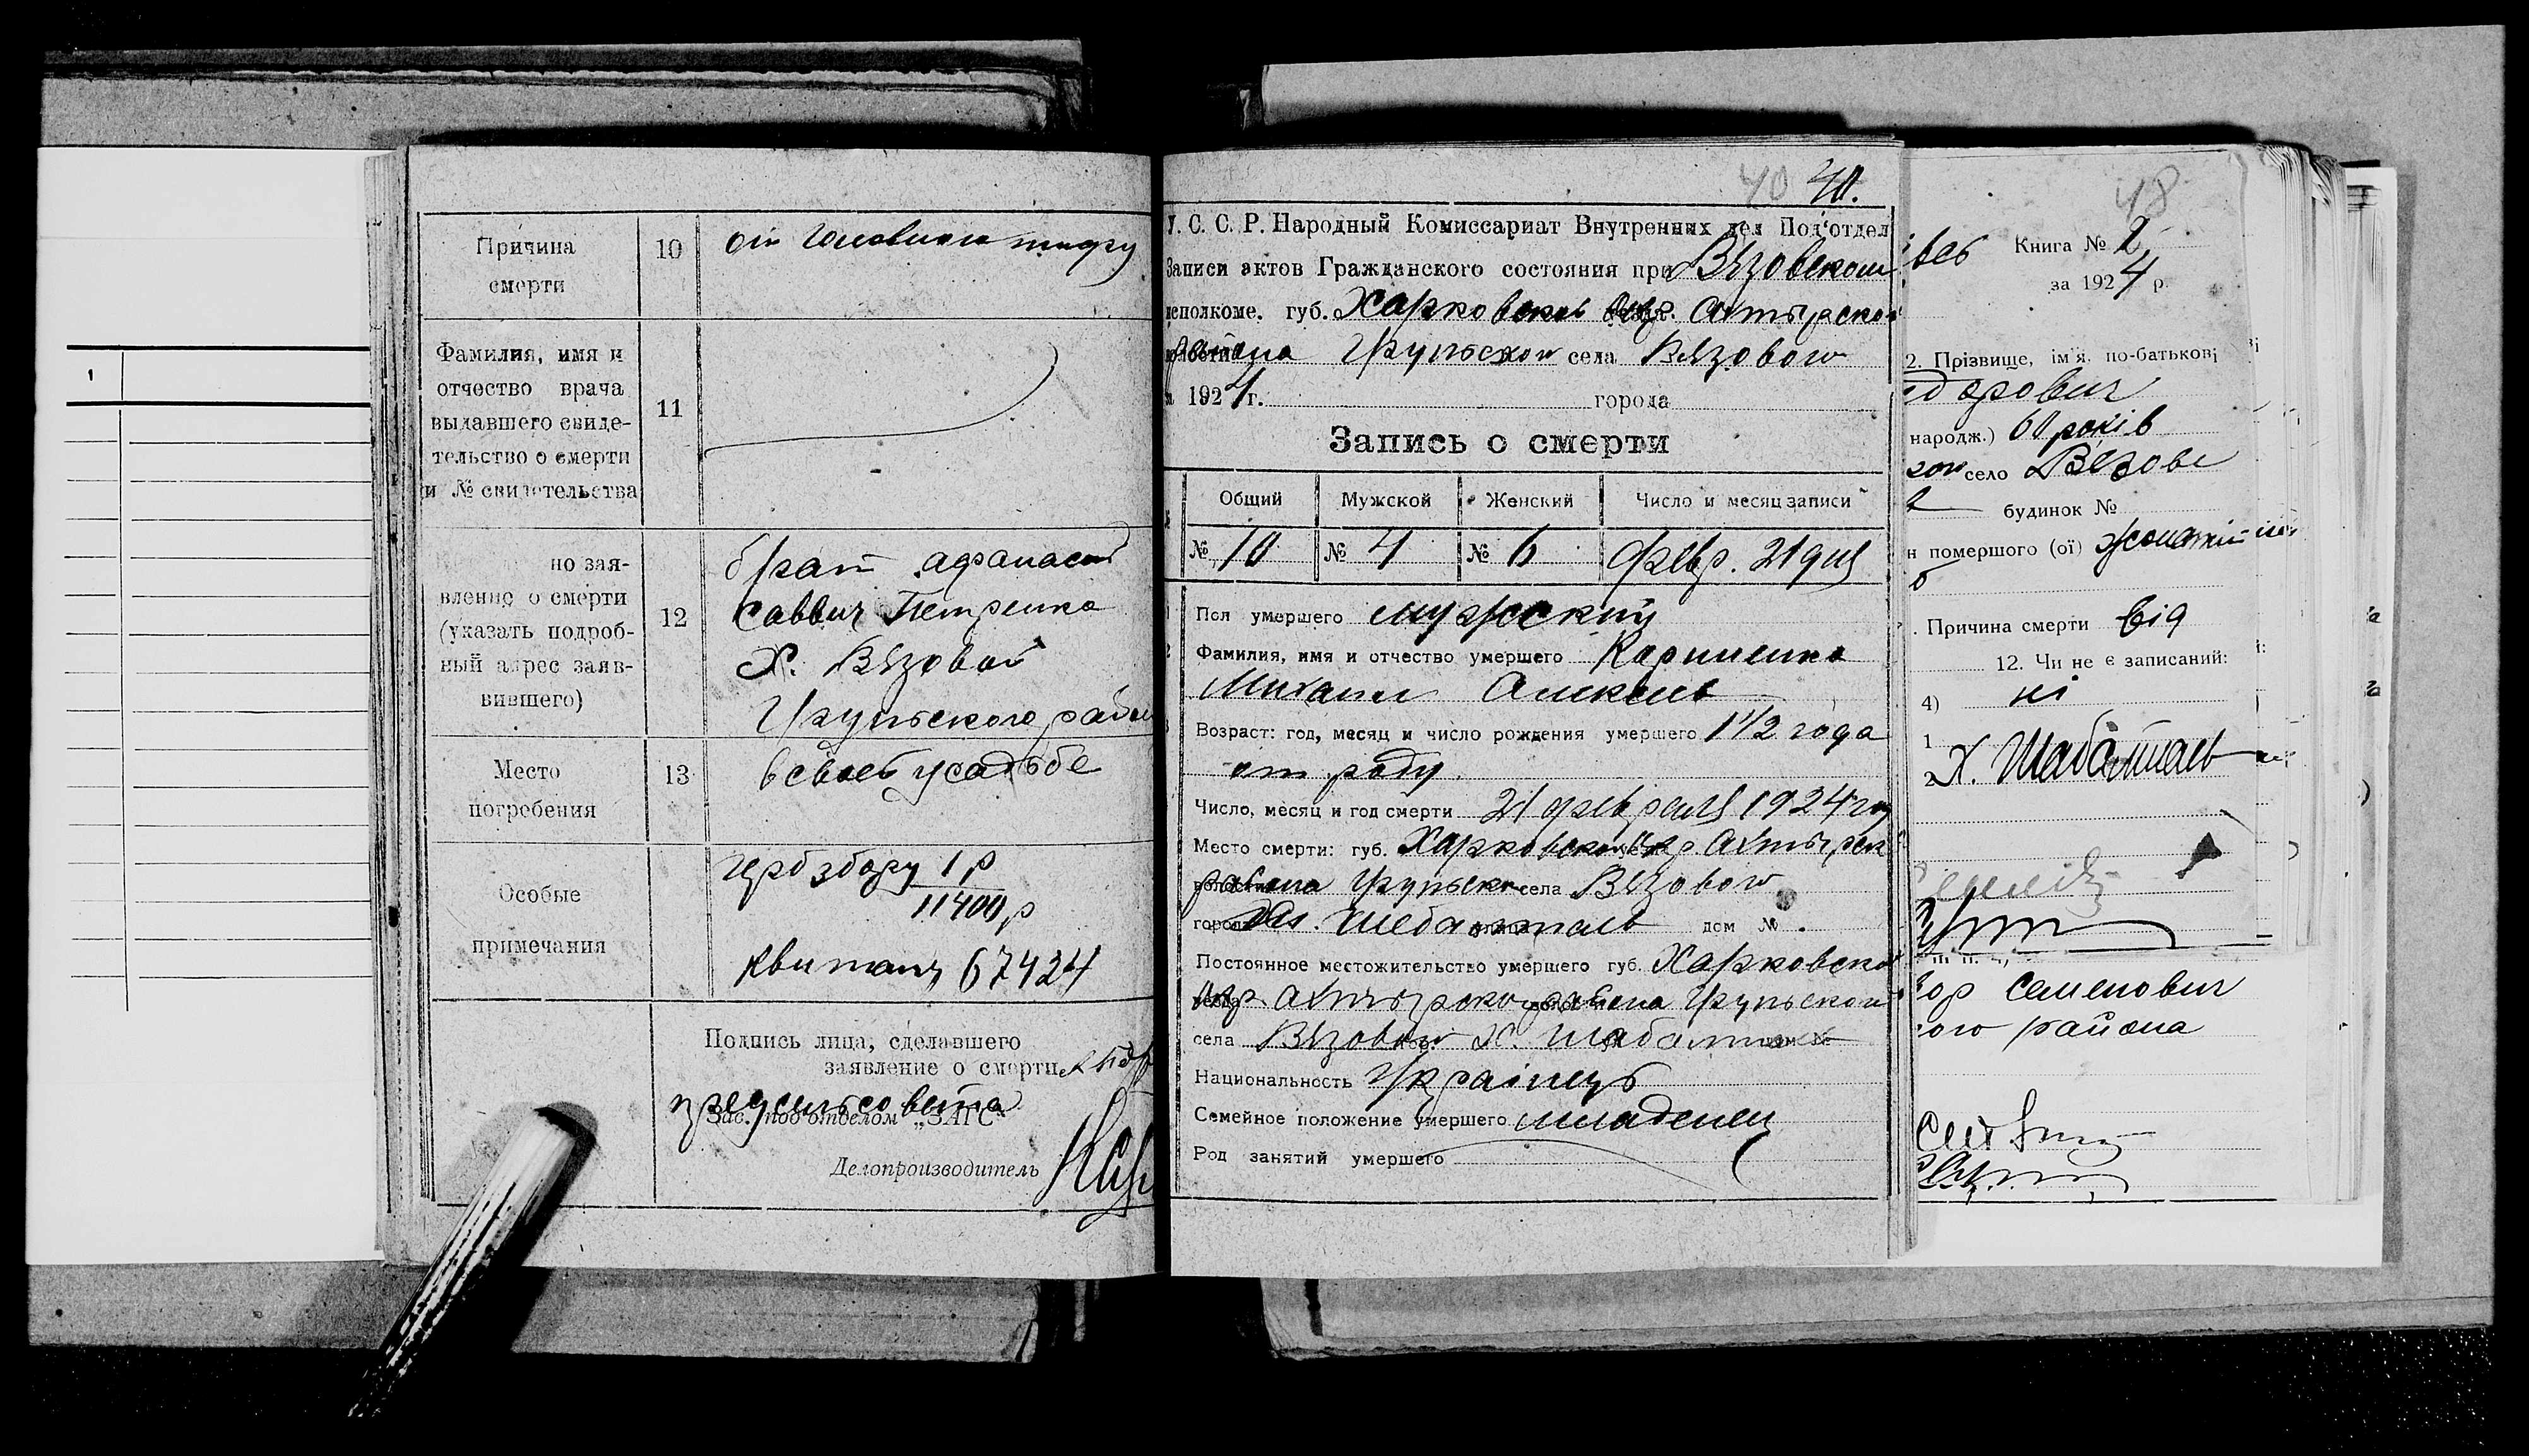 1
Причина
смерти
10
от головного тифу
Фамилия, имя и
отчество врача
выдавшего свиде-
тельство о смерти
и № свидетельства
11
но зая-
вление о смерти
(указать подроб-
ный адрес заяв-
вившего)
12
брат Афанасий
Саввич Петренко
Х. Вязовой
Грунського район
Место
погребения
13
в своей усадьбе
Особые
примечания
герб збору 1 р
11400 р
квитанц 67424
Подпись лица, сделавшего
заявление о смерти
предсильсовета
Зав. под'отделом „ЗАГС“
Делопроизводитель
40 40.
У. С. С. Р. Народный Комиссариат Внутренних дел Под'отдел
Записи актов Гражданского состояния при Вязовском
исполкоме. губ. Харковской окр. Ахтырской
района Груньском села Вязового
1924 г. города
Запись о смерти
Общий Мужской Женский Число и месяц записи
№ 10 № 4 № 6 февр. 21 дня
Пол умершего мужский
Фамилия, имя и отчество умершего Корниенко
Михаил Алексеев
Возраст: год, месяц и число рождения умершего 1 1/2 года
от роду
Число, месяц и год смерти 21 февраля 1924 го
Место смерти: губ. Харковской окр. Ахтырск
района Груньско села Вязового
город дом №
Постоянное местожительство умершего губ. Харковской
окр. Ахтырско района Грунського
села Вязовой х. Шабалтаев
Национальность Українець
Семейное положение умершего младенец
Род занятий умершего
48
Книга № 2
за 1924 р.
2. Прізвище, ім'я, по-батькові
дорович
народж.) 60 років
село Вязове
будинок №
н помершого (ої)
. Причина смерти від
12. Чи не є записаний:
4) ні
1
2 Х. Шабалтаев
ор Семенович
ого района